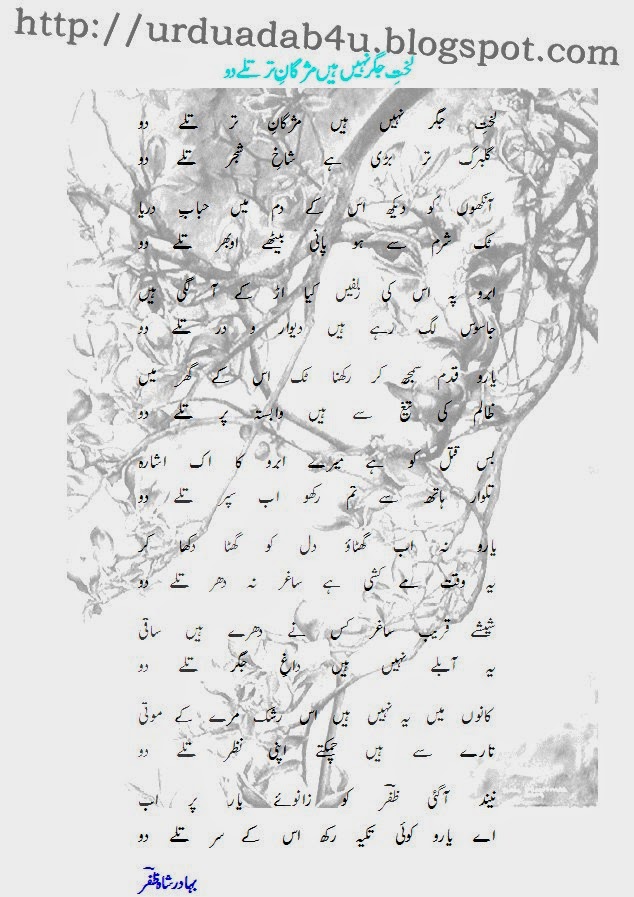 http://urduadab4u.blogspot.com
لختِ جگر نہیں ہیں مژگانِ تر تلے دو
لختِ جگر نہیں ہیں مژگانِ تر تلے دو
گلبرگ تر بڑی ہے شاخِ شجر تلے دو
آنکھوں کو دیکھ اس کے دم میں حباب دریا
ٹک شرم سے ہو پانی بیٹھے اوبھر تلے دو
ابرو پہ اس کی زلفیں کیا اڑ کے آ لگی ہیں
جاسوس لگ رہے ہیں دیوار و در تلے دو
یارو قدم سمجھ کر رکھنا ٹک اس کے گھر میں
ظالم کی تیغ سے ہیں وابستہ پر تلے دو
بس قتل کو ہے میرے ابرو کا اک اشارہ
تلوار ہاتھ سے تم رکھو اب سپر تلے دو
یارو نہ اب گھٹاؤ دل کو گھٹا دکھا کر
یہ وقت مے کشی ہے ساغر نہ دھر تلے دو
شیشے قریب ساغر کس نے دھرے ہیں ساقی
یہ آبلے نہیں ہیں داغِ جگر تلے دو
کانوں میں یہ نہیں ہیں اس رشک مرے کے موتی
تارے سے ہیں چمکتے اپنی نظر تلے دو
نیند آگئی ظفرؔ کو زانوئے یار پر اب
اے یارو کوئی تکیہ رکھ اس کے سر تلے دو
بہادر شاہ ظفرؔ